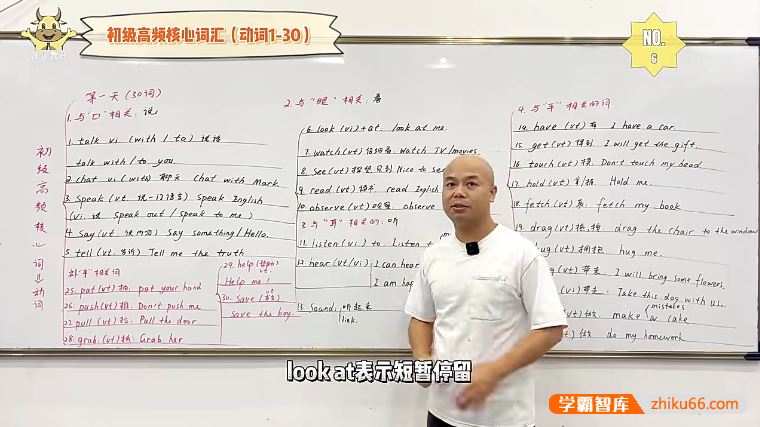 初级高频核心词汇（动词1-30）
NO.
6
初级高频核心词 动词
第一天(30词)
1. 与"口"相关: 说
1. talk vi (with / to) 谈话
talk with / to you.
2. chat vi (with) 聊天 chat with Mark
3. speak (vt. 说一门语言) Speak English
(vi. 说 speak out / speak to me)
4. Say (vt. 说内容) Say something / Hello.
5. tell (vt. 告诉) Tell me the truth
补"手"相关词
25. pat (vt) 拍. pat your hand
26. push (vt) 推. Don't push me
27. pull (vt) 拉. Pull the door
28. grab (vt) 抓. Grab her
29. help (帮助) vt.
Help me!
30. Save (救) vt.
Save the boy.
2. 与"眼"相关: 看
6. look (vi) + at. look at me.
7. Watch (vt) Watch TV / movies.
8. See (vt) Nice to see
9. read (vt) 读书 read English
10. observe (vt) 观察. observe
3. 与"耳"相关的: 听
11. listen (vi) to. Listen t
12. hear (vt / vi) I can hear
I am hap
13. Sound. 听起来
link.
4. 与"手"相关的词
14. have (vt) 有 I have a car.
15. get (vt) 得到 I will get the gift.
16. touch (vt) 摸. Don't touch my head
17. hold (vt) Hold me.
18. fetch (vt) fetch my book
19. drag (vt) drag the chair to the window
hug (vt) 拥抱 hug me.
(vt) 带来. I will bring some flowers.
(vt) 带走. Take this dog with us.
(vt) 做 make mistakes a cake
(vt) 做 do my homework
look at表示短暂停留
学霸智库 zhiku66.com